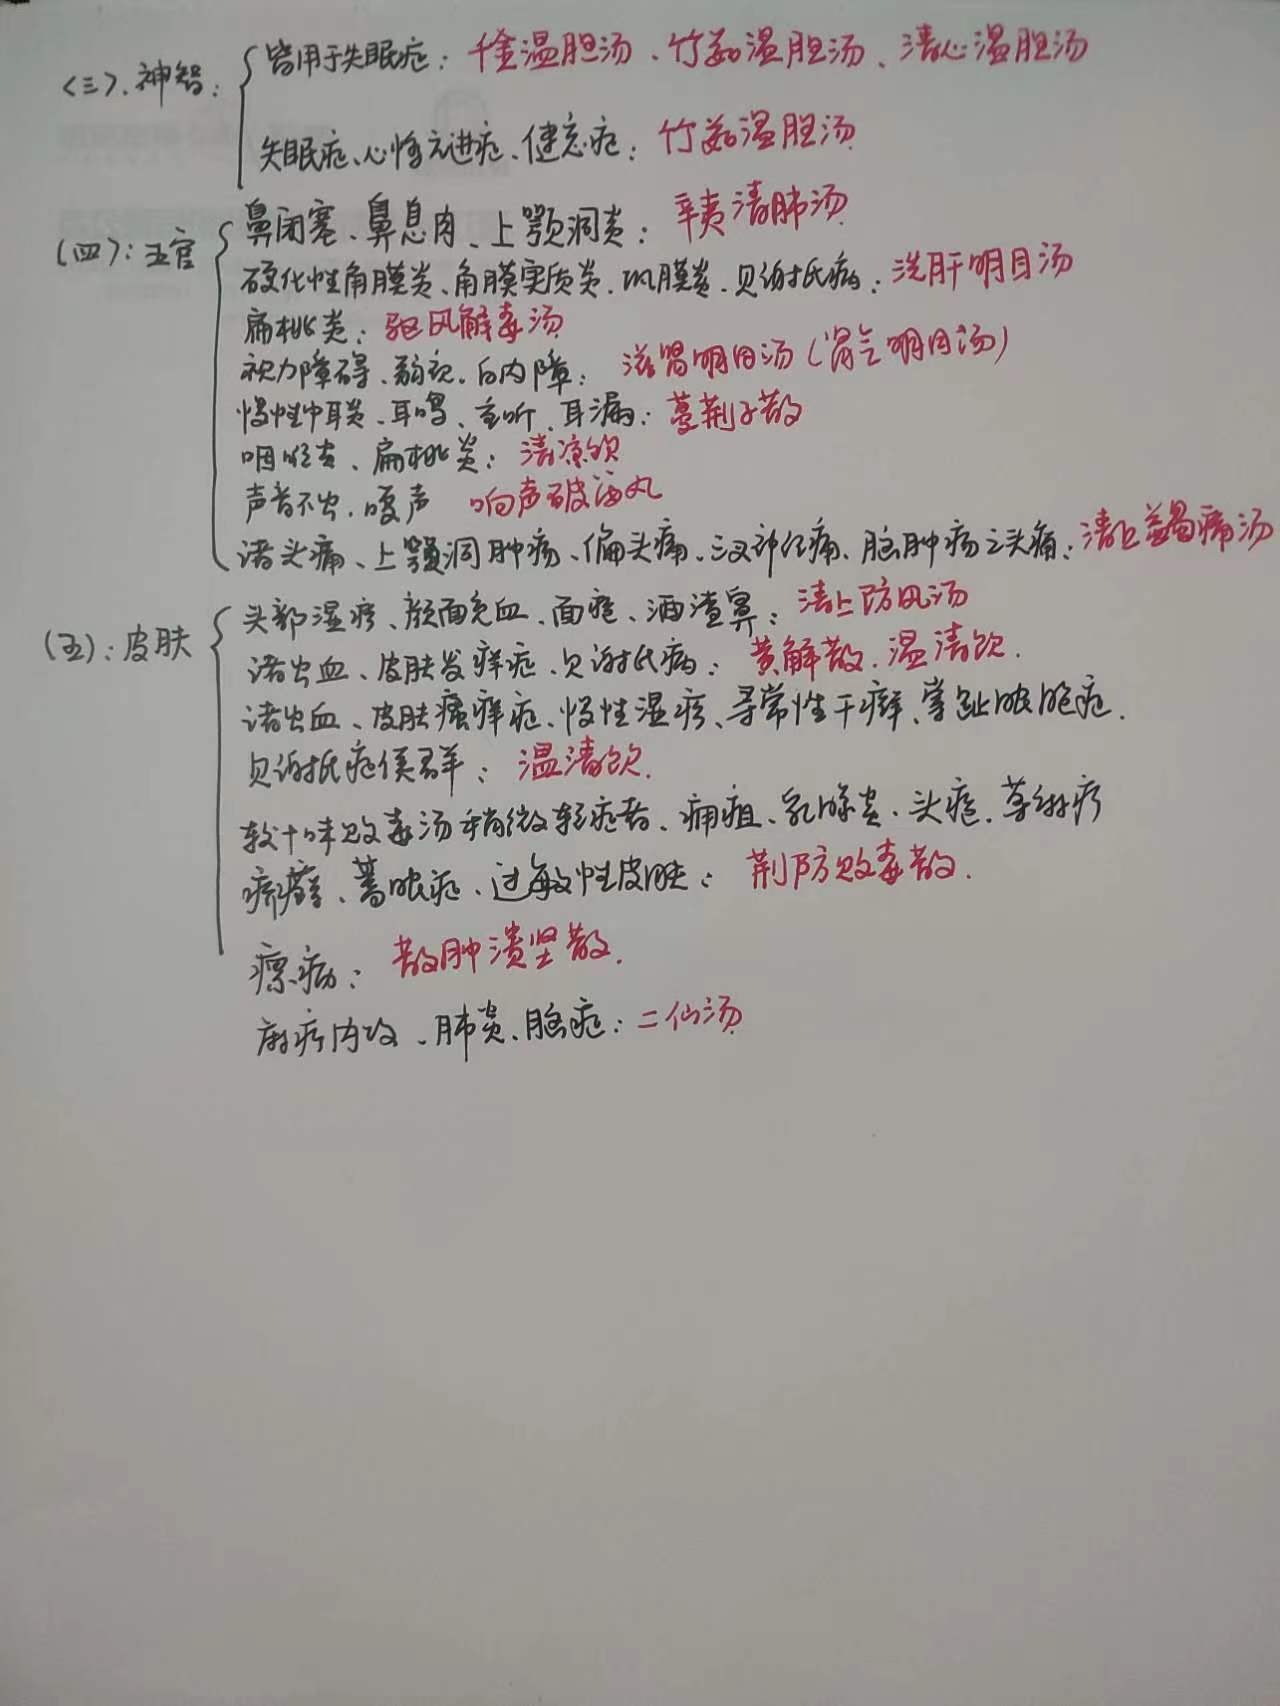 皆用于失眠症：千金温胆汤、竹茹温胆汤、清心温胆汤
〈三〉.神智：
失眠症、心悸亢进症、健忘症：竹茹温胆汤
鼻闭塞、鼻息肉、上颚洞炎：辛夷清肺汤
(四)：五官
硬化性角膜炎、角膜实质炎、巩膜炎、贝谢氏病：洗肝明目汤
扁桃炎：驱风解毒汤
视力障碍、弱视、白内障：滋肾明目汤(肾气明目汤)
慢性中耳炎、耳鸣、重听、耳漏：蔓荆子散
咽喉炎、扁桃炎：清凉饮
声音不出、嗄声 响声破笛丸
诸头痛、上颚洞肿疡、偏头痛、三叉神经痛、脑肿疡之头痛：清上蠲痛汤
头部湿疹、颜面充血、面疱、酒渣鼻：清上防风汤
(五)：皮肤
诸出血、皮肤发痒症、贝谢氏病：黄解散、温清饮.
诸出血、皮肤瘙痒症、慢性湿疹、寻常性干癣、掌趾脓疱症.
贝谢氏症候群：温清饮.
较十味败毒汤稍微轻症者、痈疽、乳腺炎、头疮、荨麻疹
疥癣、蓄脓症、过敏性皮肤：荆防败毒散.
瘰疬：散肿溃坚散.
麻疹内攻、肺炎、脑症：二仙汤